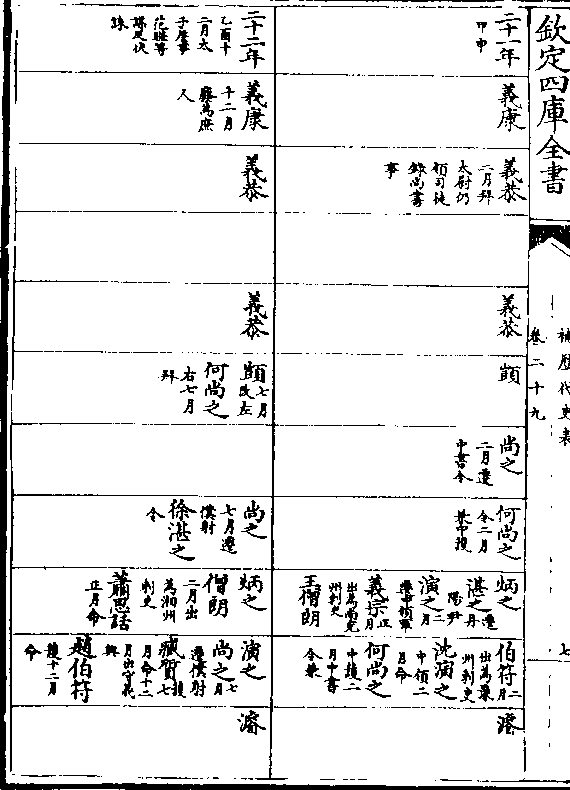 欽定四庫全書
補歷代史表
卷二十九
七
二十一年
甲申
義康
義恭
二月拜
太尉仍
領司徒
錄尚書
事
義恭
顗
尚之
二月遷
中書令
何尚之
令二月
兼中護
炳之
湛之遷丹
陽尹
演之二月
遷中領軍
義宗正月
出為南兗
州刺史
王僧朗
伯符二月
出為豫
州刺史
沈演之
中領二
月命
何尚之
中護二
月中書
令兼
濬
二十二年
乙酉十
二月太
子詹事
范曄等
謀反伏
誅
義康
十二月
廢為庶
人
義恭
義恭
顗七月
改左
何尚之
右七月
拜
尚之
七月遷
僕射
徐湛之
令
炳之
僧朗
二月出
為湘州
刺史
蕭思話
正月命
演之
尚之七月
遷僕射
臧質護七
月命十二
月出守義
興
趙伯符
護十二月
命
濬